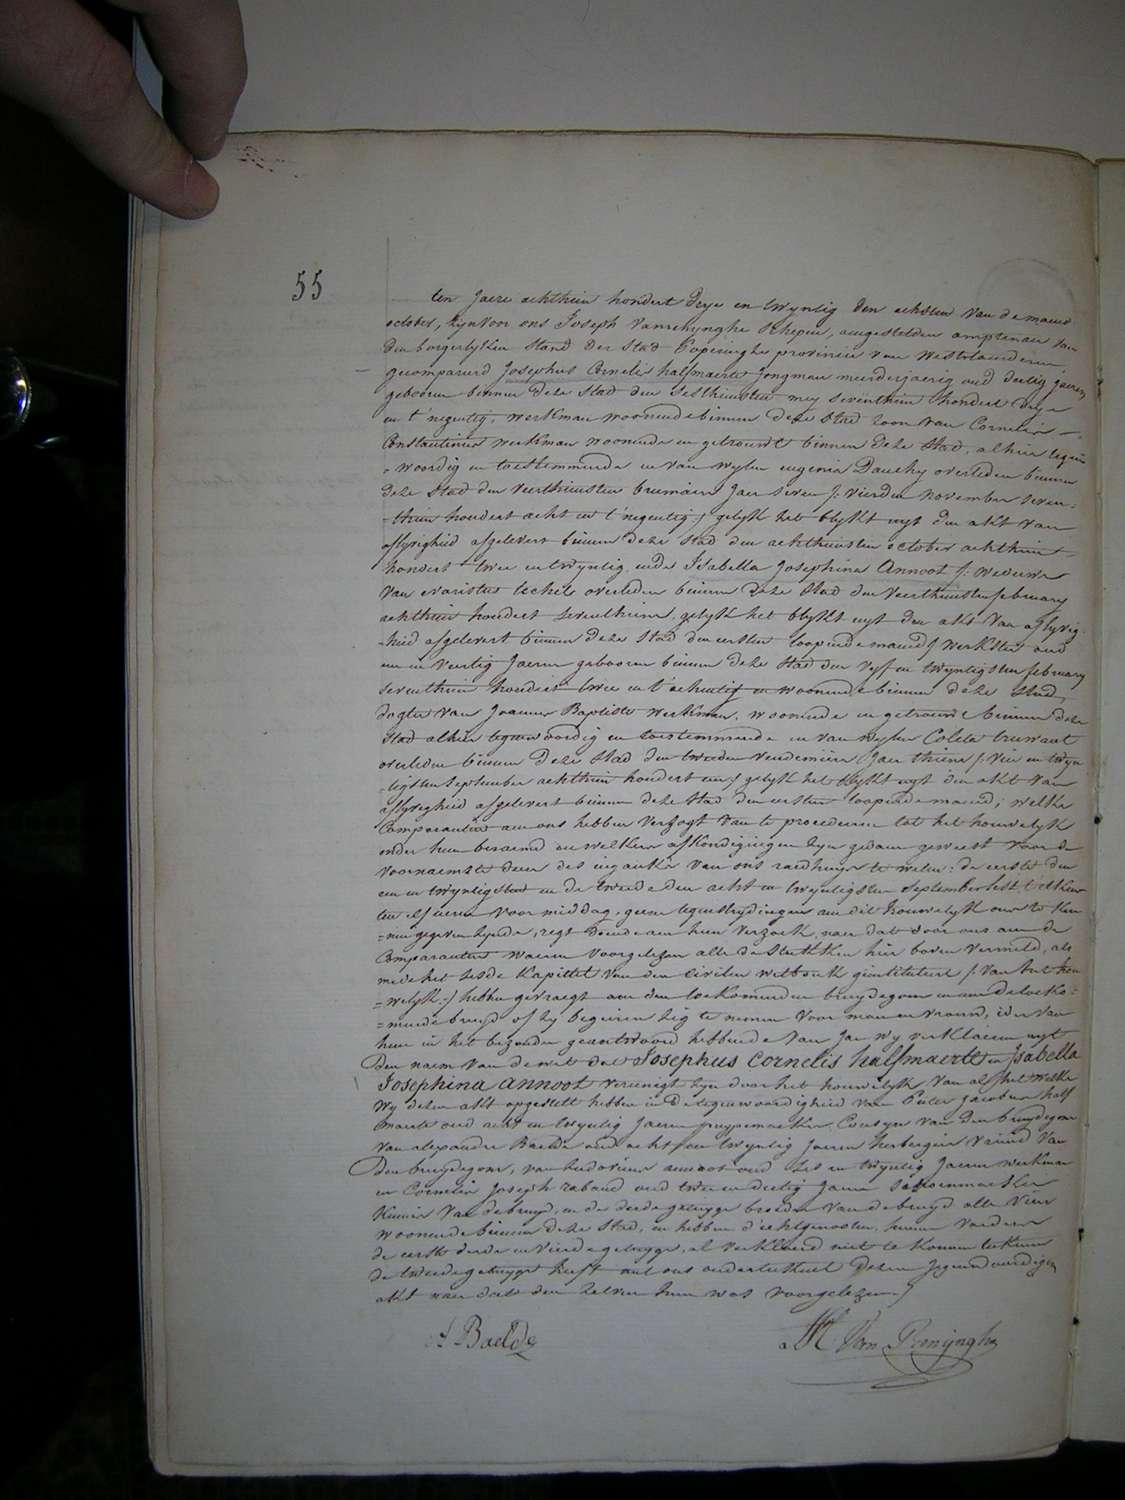 55
ten Jaere achthien hondert Drye en twyntig den achsten van de maend
october, zyn voor ons Joseph Vanrenynghe schepen, aengestelden amptenaer van
den borgerlyken Stand der Stad Poperinghe provincie van Westvlaenderen
gecompareerd Josephus Cornelis halfmaerte Jongman meerderjaerig oud dertig jaeren
gebooren binnen deze Stad den sesthiensten mey seventhien hondert drye
en t'negentig, werkman woonende binnen deze Stad zoon van Cornelis
Constantinus werkman woonende en getrouwt binnen deze Stad, alhier tegen
woordig en toestemmende en van wylen eugenia Dauchy overleden binnen
deze Stad den veerthiensten brumaire Jaer seven /: vierden november seven-
-thien hondert acht en t'negentig:/ gelyk het blykt uyt den akt van
aflyvigheid afgelevert binnen deze Stad den achthiensten october achthien
hondert twee en twyntig, ende Isabella Josephina Annoot /: weduwe
van evaristus lechel overleden binnen deze Stad den veerthiensten february
achthien hondert seventhien, gelyk het blykt uyt den akt van aflyvig-
-heid afgelevert binnen deze Stad den eersten loopende maend/ werkster oud
een en veertig Jaeren gebooren binnen deze Stad den vyf en twyntigsten february
seventhien hondert twee en t'achentig en woonende binnen deze Stad,
dogter van Joannes Baptiste werkman, woonende en getrouwt binnen deze
Stad alhier tegenwoordig en toestemmende en van wylen Coleta truwant
overleden binnen deze Stad den tweeden vendemiere Jaer thiene /: vier en twyn
tigsten september achthien hondert een:/ gelyk het blykt uyt den akt van
aflyvigheid afgelevert binnen deze Stad den eersten loopende maend; welke
Comparanten aen ons hebben verzogt van te procederen tot het houwelyk
onder hun beraemd en welkers afkondigingen zyn gedaen geweest voor de
voornaemste deur des ingank's van ons raedhuys te weten: de eerste den
een en twyntigsten en de tweede den acht en twyntigsten september lest t'elkens
ten elf ueren voor middag, geene tegenstrydingen aen dit houwelyk ons te ken
=nen gegeven zynde, regt doende aen hun verzoek, naer dat door ons aen de
Comparanten waeren voorgelezen alle de stukken hier boven vermeld, als
mede het sesde kapittel van den Civilen wetboek geintituleert /: van het hou
=welyk :/ hebben gevraegt aen den toekomenden bruydegom en aen de toeko=
=mende bruyd of zy begeiren zig te nemen voor man en vrouw, ider van
hun in het bezonder geantwoord hebbende van Jae wy verklaeren uyt
Den naem van de wet dat Josephus Cornelis halfmaerte en Isabella
Josephina Annoot vereenigt zyn door het houwelyk van al het welke
Wy dezen akt opgestelt hebben in de tegenwoordigheid van Pieter Jacobus half
maerte oud acht en twyntig Jaeren Cousyn van den bruydegom
van alexander Baelde oud acht en twyntig Jaeren herbergier vriend van
Den bruydegom, van ludovicus annoot oud ses en twyntig Jaeren werkman
en Cornelis Joseph rabaud oud twee en dertig Jaeren schoenmaeker
kennis van de bruyd, en de derde getuyge broeder van de bruyd alle vier
woonende binnen deze Stad, en hebben d'echtgenooten, hunne vaders
de eerste derde en vierde getuyge, al verklaerd niet te konnen teekenen
de tweede getuyge heeft met ons onderteekent dezen jegenwoordigen
akt naer dat den zelven hun was voorgelezen./
A. Baelde
Van Renynghe